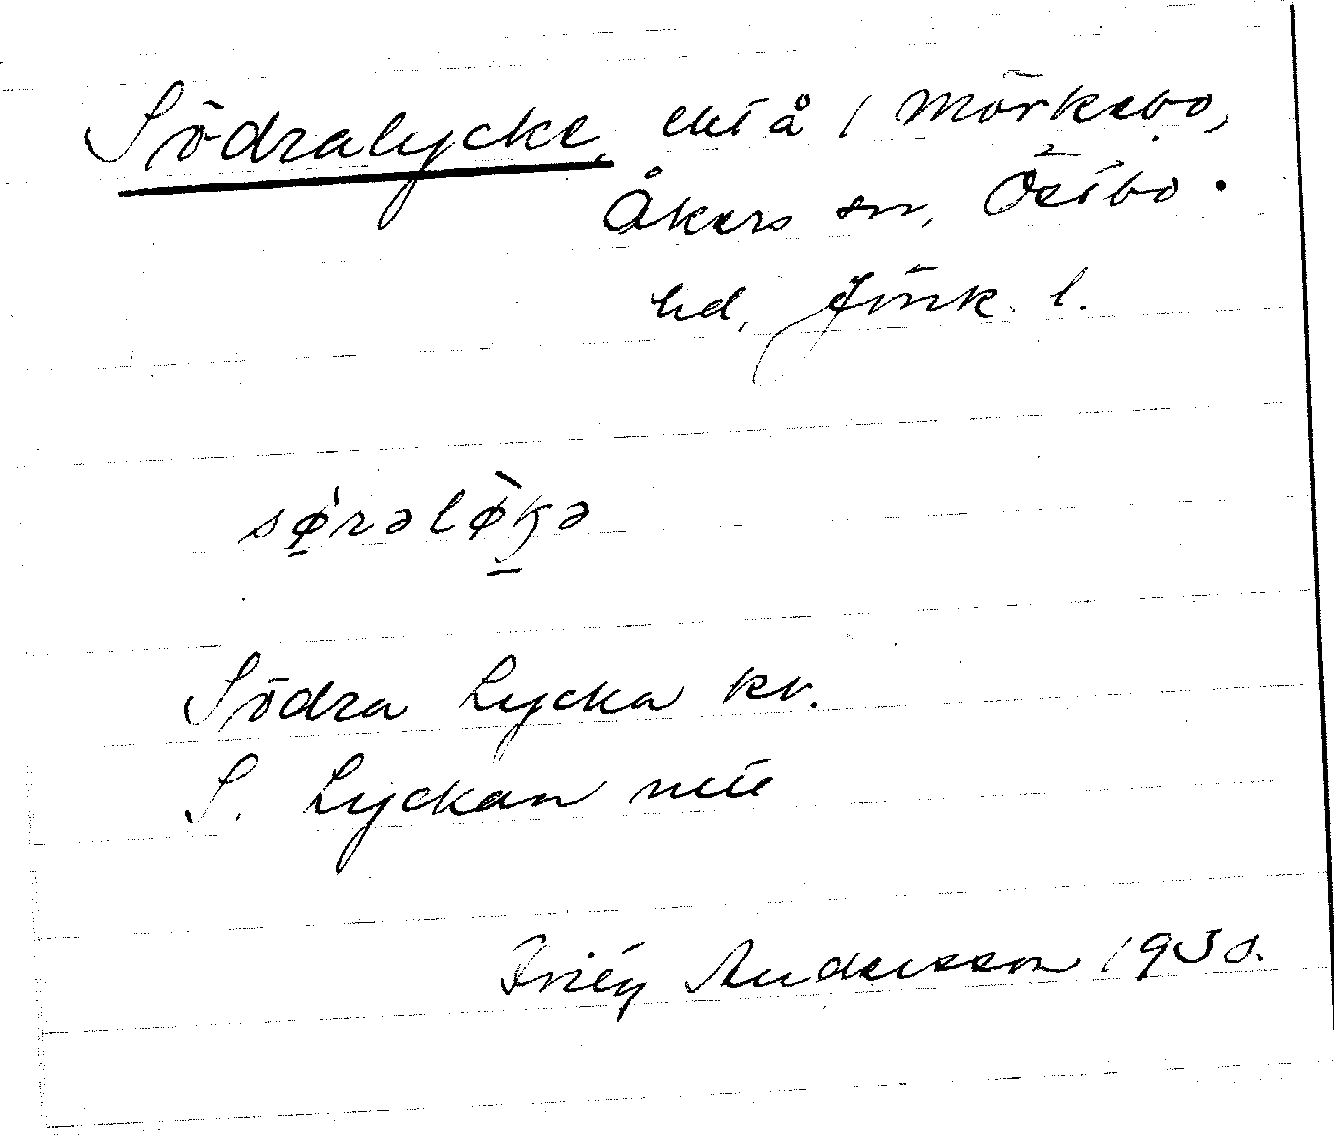 Södralycke, utå i Mörkebo,
Åkers sn, Östbo
hd, Jönk. l.
sø̀rəlø̀kə
Södra Lycka kv.
S. Lyckan
Andersson 1930.